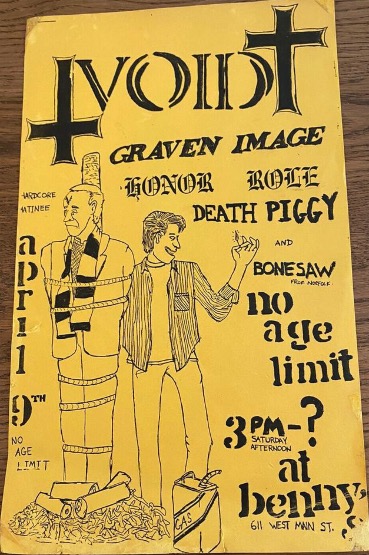 VOID
GRAVEN IMAGE
HONOR ROLE
DEATH PIGGY
HARDCORE
MATINEE
AND
BONESAW
FROM NORFOLK
april
9TH
NO
AGE
LIMIT
no
age
limit
3PM-?
SATURDAY
AFTERNOON
at
benny's
611 WEST MAIN ST.
GAS